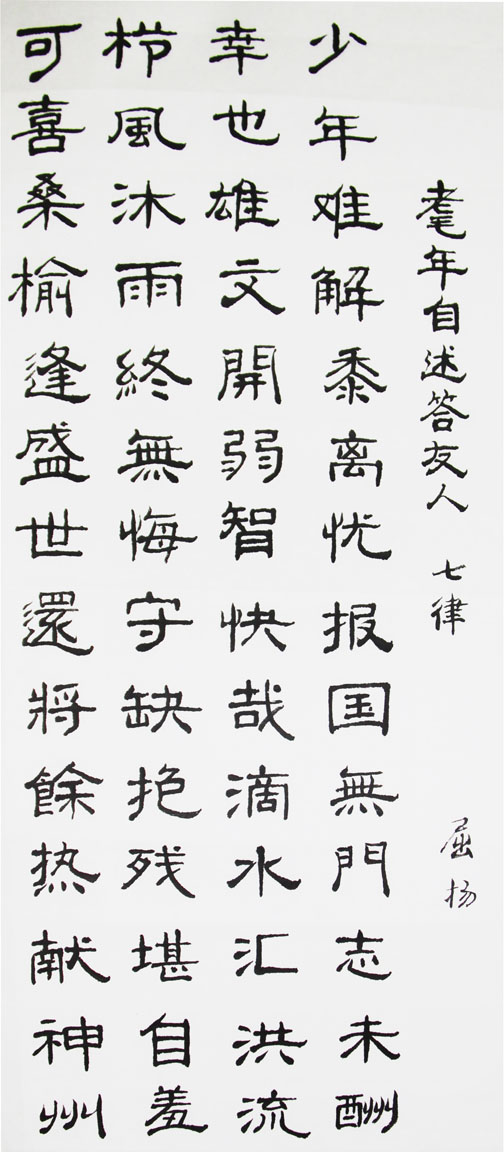 耄年自述答友人 七律 屈杨
少年难解黍离忧报国無門志未酬
幸也雄文開弱智快哉滴水汇洪流
栉風沐雨終無悔守缺抱残堪自羞
可喜桑榆逢盛世還將餘热献神州